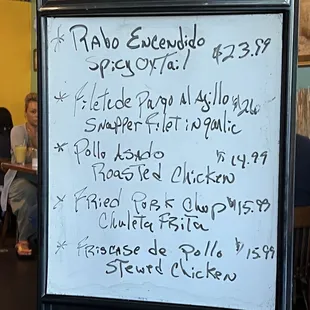 * Rabo Encendido $23.99
Spicy Oxtail
* Filete de Pargo Al Ajillo $26
Snapper Filet in garlic
* Pollo Asado $14.99
Roasted Chicken
* Fried Pork Chop $15.99
Chuleta Frita
* Friscase de Pollo $15.99
Stewed Chicken